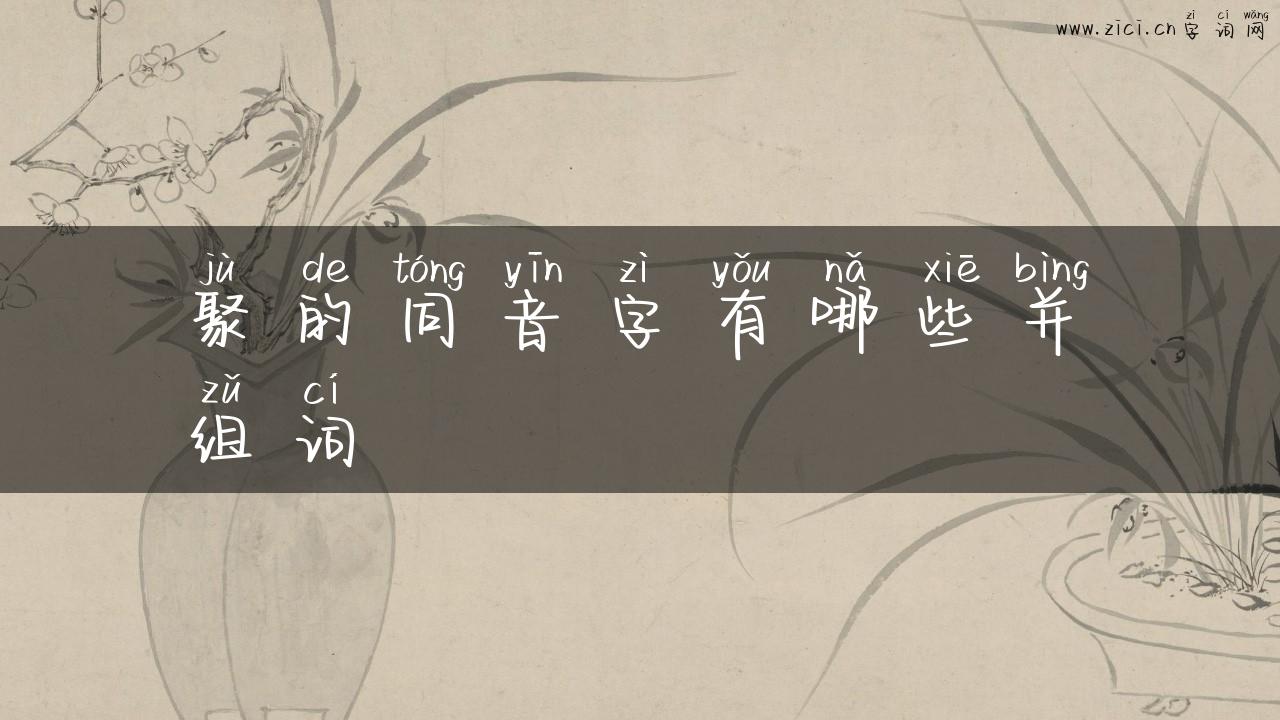 zì cí wǎng
www.zici.cn 字词网
jù de tóng yīn zì yǒu nǎ xiē bìng
聚的同音字有哪些并
zǔ cí
组词